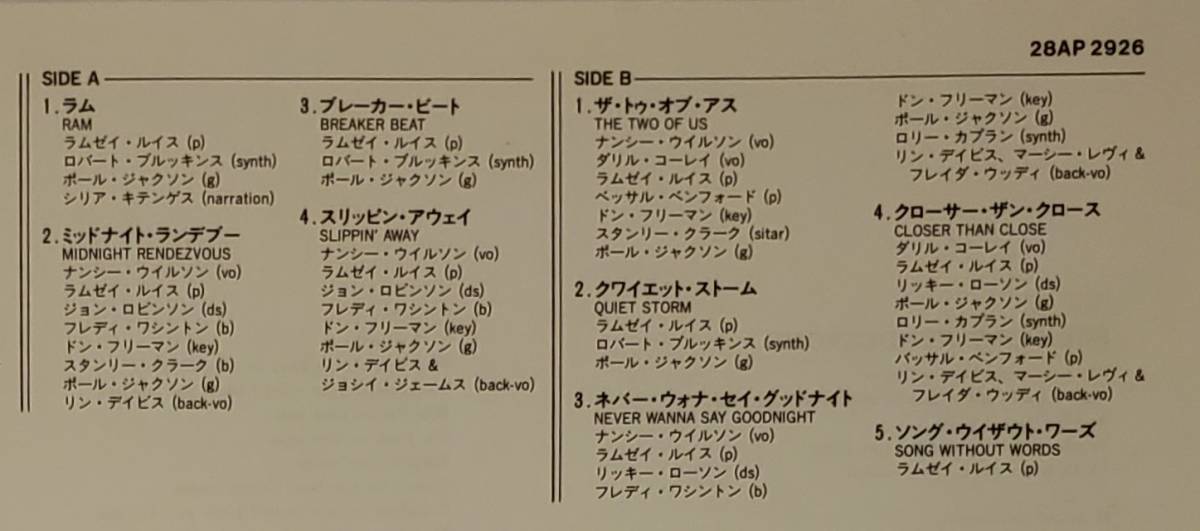 28AP 2926
SIDE A
1. ラム
RAM
ラムゼイ・ルイス (p)
ロバート・ブルッキンス (synth)
ポール・ジャクソン (g)
シリア・キテンゲス (narration)
2. ミッドナイト・ランデブー
MIDNIGHT RENDEZVOUS
ナンシー・ウイルソン (vo)
ラムゼイ・ルイス (p)
ジョン・ロビンソン (ds)
フレディ・ワシントン (b)
ドン・フリーマン (key)
スタンリー・クラーク (b)
ポール・ジャクソン (g)
リン・デイビス (back-vo)
3. ブレーカー・ビート
BREAKER BEAT
ラムゼイ・ルイス (p)
ロバート・ブルッキンス (synth)
ポール・ジャクソン (g)
4. スリッピン・アウェイ
SLIPPIN' AWAY
ナンシー・ウイルソン (vo)
ラムゼイ・ルイス (p)
ジョン・ロビンソン (ds)
フレディ・ワシントン (b)
ドン・フリーマン (key)
ポール・ジャクソン (g)
リン・デイビス &
ジョシイ・ジェームス (back-vo)
SIDE B
1. ザ・トゥ・オブ・アス
THE TWO OF US
ナンシー・ウイルソン (vo)
ダリル・コーレイ (vo)
ラムゼイ・ルイス (p)
ベッサル・ベンフォード (p)
ドン・フリーマン (key)
スタンリー・クラーク (sitar)
ポール・ジャクソン (g)
2. クワイエット・ストーム
QUIET STORM
ラムゼイ・ルイス (p)
ロバート・ブルッキンス (synth)
ポール・ジャクソン (g)
3. ネバー・ウォナ・セイ・グッドナイト
NEVER WANNA SAY GOODNIGHT
ナンシー・ウイルソン (vo)
ラムゼイ・ルイス (p)
リッキー・ローソン (ds)
フレディ・ワシントン (b)
ドン・フリーマン (key)
ポール・ジャクソン (g)
ロリー・カプラン (synth)
リン・デイビス、マーシー・レヴィ &
フレイダ・ウッディ (back-vo)
4. クローサー・ザン・クロース
CLOSER THAN CLOSE
ダリル・コーレイ (vo)
ラムゼイ・ルイス (p)
リッキー・ローソン (ds)
ポール・ジャクソン (g)
ロリー・カプラン (synth)
ドン・フリーマン (key)
バッサル・ベンフォード (p)
リン・デイビス、マーシー・レヴィ &
フレイダ・ウッディ (back-vo)
5. ソング・ウイザウト・ワーズ
SONG WITHOUT WORDS
ラムゼイ・ルイス (p)